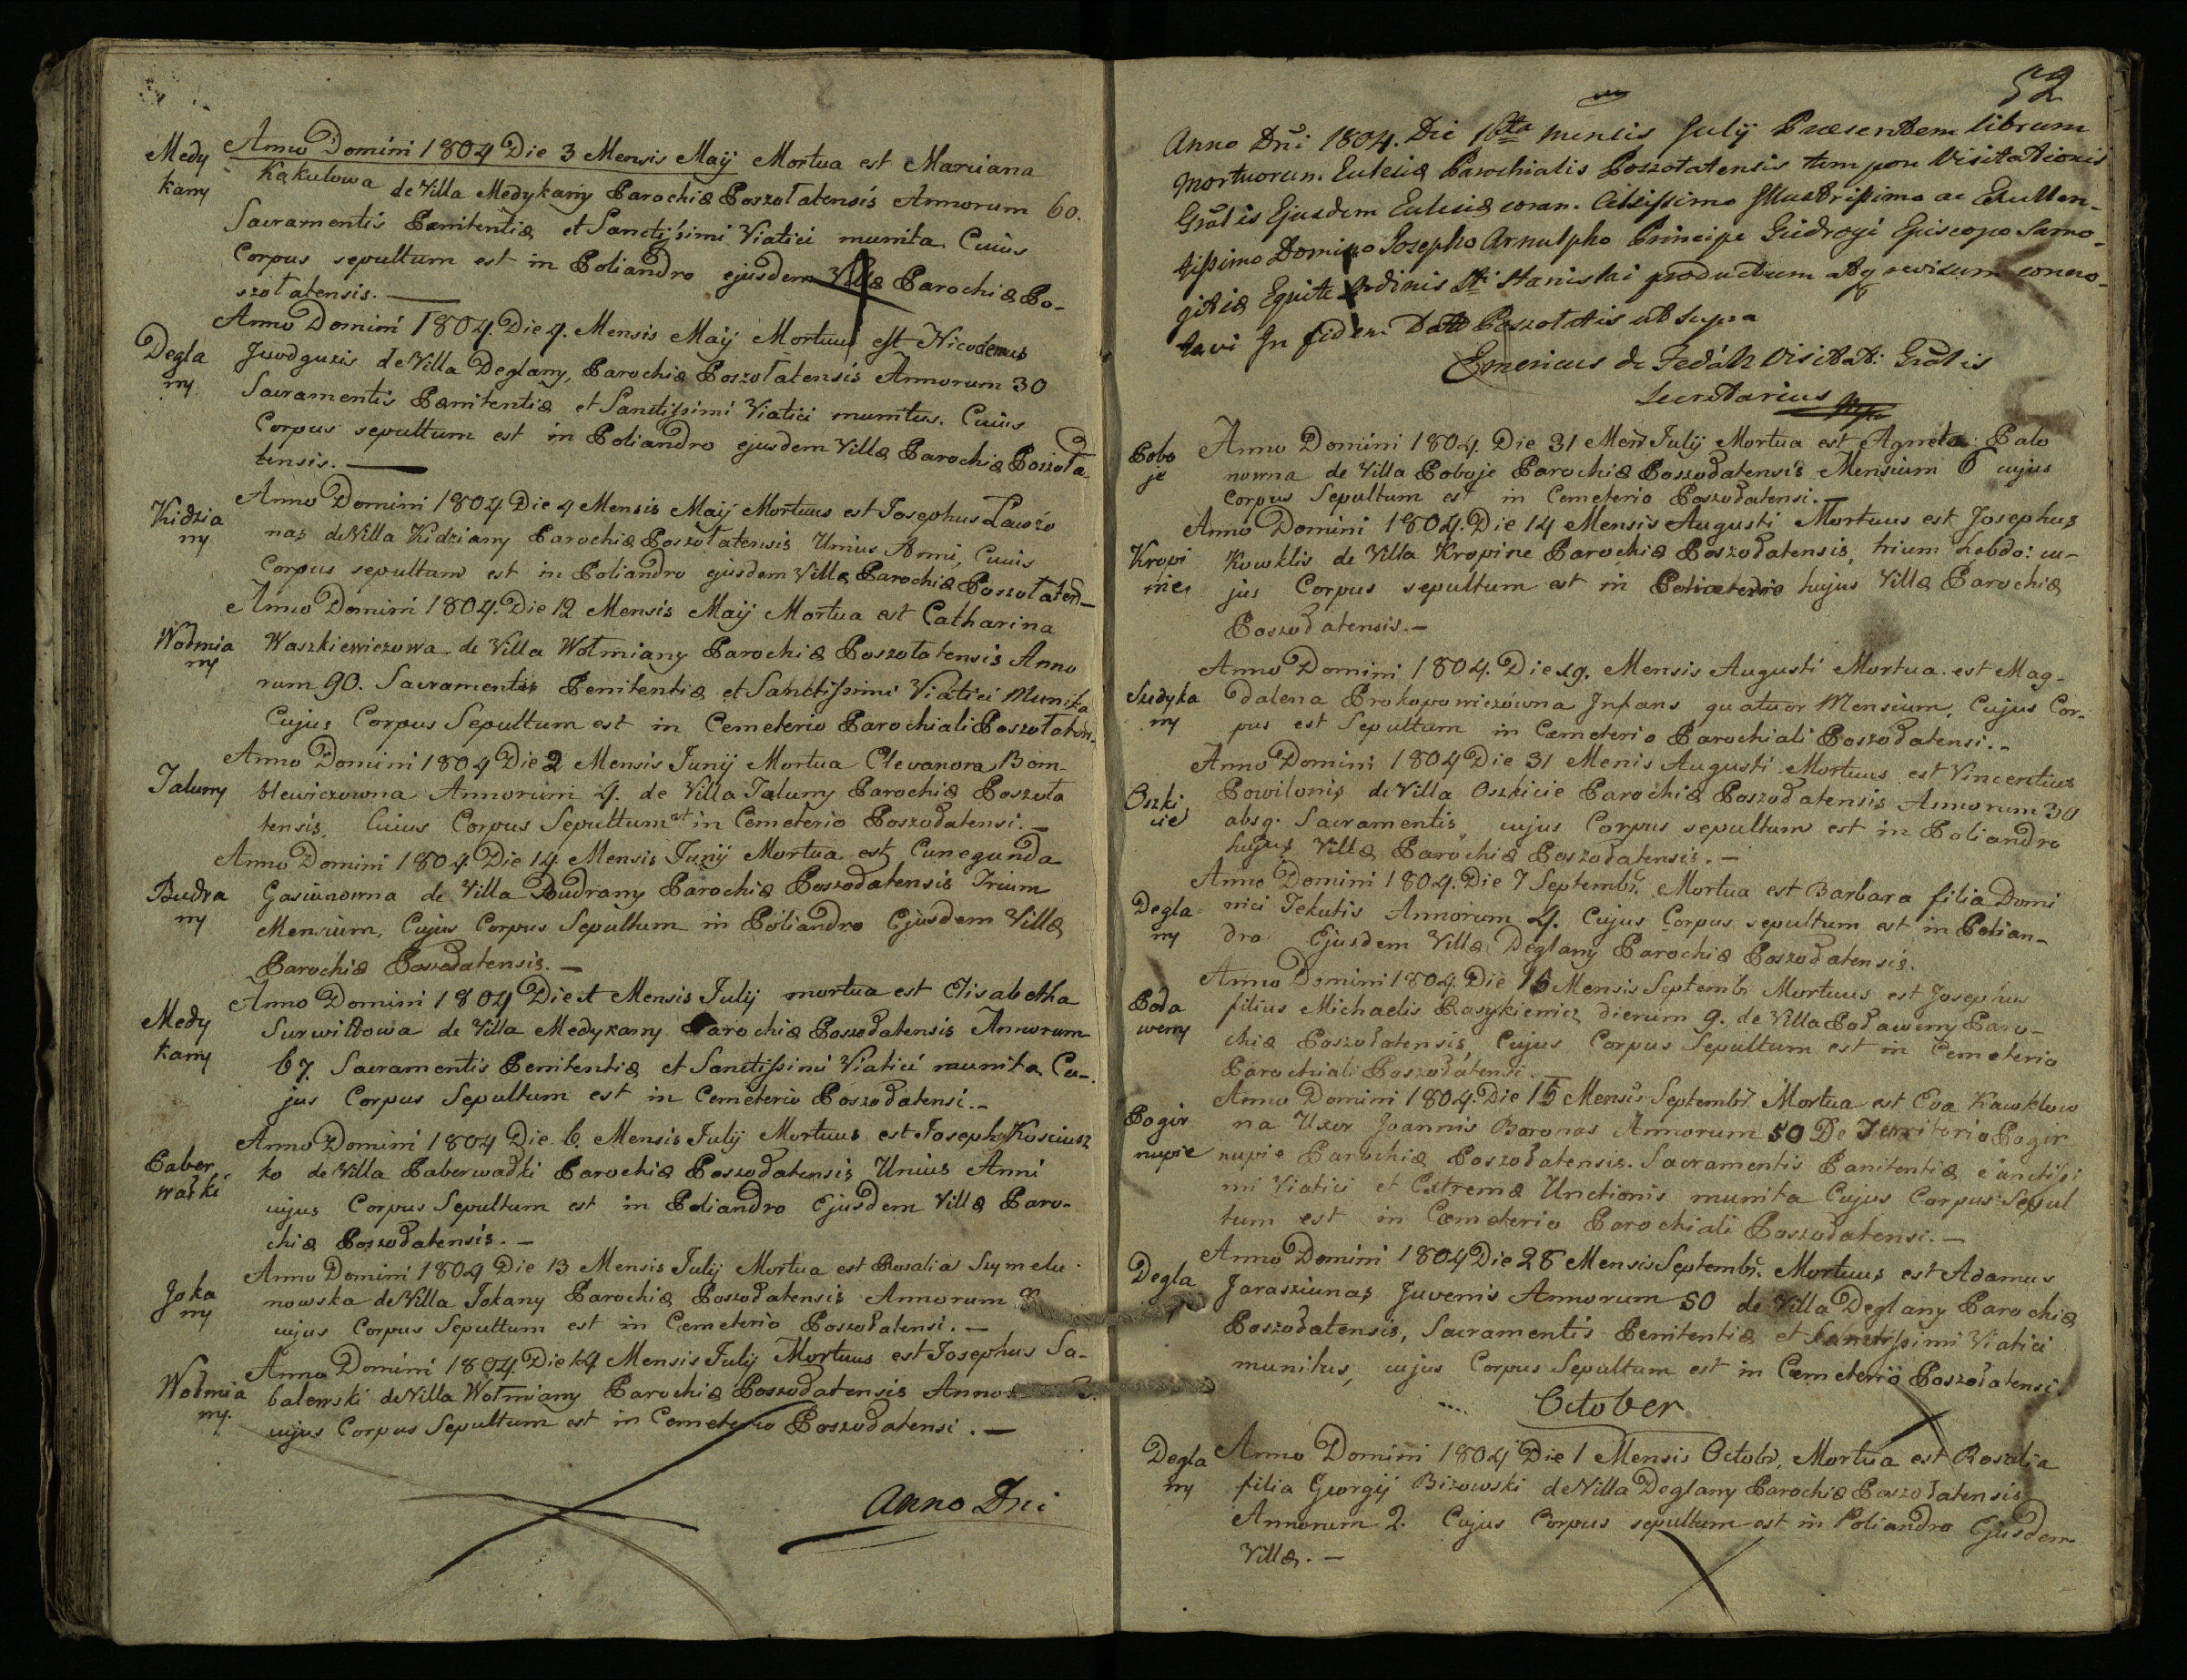 Medy
kany
Anno Domini 1804 Die 3 Mensis Maij Mortua est Marciana
Kąkulowa de Villa Medykany Parochiæ Poszołatensis Annorum 60.
Sacramentis Pænitentiæ et Sanctissimi Viatici munita Cuius
Corpus sepultum est in Poliandro ejusdem Villæ Parochiæ Po-
szołatensis. —
Degla
ny
Anno Domini 1804. Die 4. Mensis Maij Mortuus est Nicodemus
Juodguzis de Villa Deglany, Parochiæ Poszołatensis Annorum 30
Sacramentis Pænitentiæ et Sanctissimi Viatici munitus. Cuius
Corpus sepultum est in Poliandro ejusdem Villæ Parochiæ Poszoła-
tensis. —
Kidzia
ny
Anno Domini 1804 Die 4 Mensis Maij Mortuus est Josephus Lawry
nas de Villa Kidziany Parochiæ Poszołatensis Unius Anni, Cuius
Corpus sepultum est in Poliandro ejusdem Villæ Parochiæ Poszołaten-
Wodmia
ny
Anno Domini 1804. Die 12 Mensis Maij Mortua est Catharina
Waszkiewiczowa de Villa Wołmiany Parochiæ Poszołatensis Anno
rum 90. Sacramentis Penitentiæ et Sanctissimi Viatici Munita
Cujus Corpus Sepultum est in Cemeterio Parochiali Poszołaten.
Jaluny
Anno Domini 1804 Die 2 Mensis Junij Mortua Elevanora Bom-
blewiczowna Annorum 4. de Villa Jaluny Parochiæ Poszoła
tensis, Cuius Corpus Sepultum est in Cemeterio Poszodatensi. —
Budra
ny
Anno Domini 1804. Die 14. Mensis Junij Mortua est Cunegunda
Gasiunowna de Villa Budrany Parochiæ Poszodatensis Trium
Mensium, Cujus Corpus Sepultum in Poliandro Ejusdem Villæ
Parochiæ Poszodatensis. —
Medy
kany
Anno Domini 1804 Die 1 Mensis Julij mortua est Elisabetha
Surwiłłowa de Villa Medykany Parochiæ Poszodatensis Annorum
67. Sacramentis Penitentiæ et Sanctissimi Viatici munita Cu-
jus Corpus Sepultum est in Cemeterio Poszodatensi. -
Paber
wałki
Anno Domini 1804 Die 6. Mensis Julij Mortuus est Joseph Kosciusz
ko de Villa Paberwałki Parochiæ Poszodatensis Unius Anni
cujus Corpus Sepultum est in Poliandro Ejusdem Villæ Paro-
chiæ Poszodatensis. —
Joka
ny
Anno Domini 1804 Die 13 Mensis Julij Mortua est Rosalia Szymelu
nowska de Villa Jokany Parochiæ Poszodatensis Annorum
cujus Corpus Sepultum est in Cemeterio Poszodatensi. —
Wołmia
ny.
Anno Domini 1804. Die 14 Mensis Julij Mortuus est Josephus Sa-
balewski de Villa Wołmiany Parochiæ Poszodatensis Anno 3.
cujus Corpus Sepultum est in Cemeterio Poszodatensi. —
Anno Dni
52
Anno Dñi 1804. Die 16ta mensis Julij Præsentem librum
Mortuorum Ecclesiæ Parochialis Poszołatensis tempore Visitationis
Gralis Ejusdem Ecclesiæ coram Celsissimo Illustrissimo ac Excellen-
tissimo Domino Josepho Arnulpho Principe Giedroyć Episcopo Samo-
gitiæ Equite Ordinis Sti Stanislai productum atq revisum conno-
tavi In fidem Datt Poszołatis ut supra
Emericus de Fedák Visitat: Gralis
Secretarius
Pobo
je
Anno Domini 1804. Die 31 Mens Julij Mortua est Agneta Palo
nowna de Villa Poboje Parochiæ Poszodatensis Mensium 6 cujus
Corpus Sepultum est in Cemeterio Poszodatensi. —
Kropi
nie
Anno Domini 1804. Die 14 Mensis Augusti Mortuus est Josephus
Kowklis de Villa Kropine Parochiæ Poszodatensis, trium hebdo: cu-
jus Corpus sepultum est in hujus Villæ Parochiæ
Poszodatensis. —
Szedyka
ny
Anno Domini 1804. Die 19. Mensis Augusti Mortua est Mag-
dalena Prokopowiczówna Infans quatuor Mensium, Cujus Cor-
pus est Sepultum in Cæmeterio Parochiali Poszodatensi. -
Oszki
cie
Anno Domini 1804 Die 31 Menis Augusti Mortuus est Vincentius
Powilonis de Villa Oszkicie Parochiæ Poszodatensis Annorum 30
absq. Sacramentis, cujus Corpus sepultum est in Poliandro
hujus Villæ Parochiæ Poszodatensis. —
Degla
ny
Anno Domini 1804. Die 7 Septembr. Mortua est Barbara filia Domi
nici Jekutis Annorum 4. Cujus Corpus sepultum est in Polian-
dro Ejusdem Villæ Deglany Parochiæ Poszodatensis.
Poda
weny
Anno Domini 1804. Die 15 Mensis Septemb Mortuus est Josephus
filius Michaelis Rasykiewicz dierum 9. de Villa Podaweny Paro-
chiæ Poszodatensis, Cujus Corpus Sepultum est in Cemeterio
Parochiali Poszodatensi. —
Pogir
nupie
Anno Domini 1804. Die 15 Mensis Septembr. Mortua est Eva Kawklow
na Uxor Joannis Baronas Annorum 50 De Territorio Pogir
nupie Parochiæ Poszodatensis. Sacramentis Pænitentiæ Sanctissi
mi Viatici et Extremæ Unctionis munita Cujus Corpus Sepul
tum est in Cæmeterio Parochiali Poszodatensi. —
Degla
ny
Anno Domini 1804 Die 28 Mensis Septembr. Mortuus est Adamus
Jarasziunas Juvenis Annorum 50 de Villa Deglany Parochiæ
Poszodatensis, Sacramentis Penitentiæ et Sanctissimi Viatici
munitus, cujus Corpus Sepultum est in Cæmeterio Poszodatensi.
October
Degla
ny
Anno Domini 1804 Die 1 Mensis Octobr, Mortua est Rosalia
filia Georgij Bizowski de Villa Deglany Parochiæ Poszodatensis
Annorum 2. Cujus Corpus sepultum est in Poliandro Ejusdem
Villæ. —